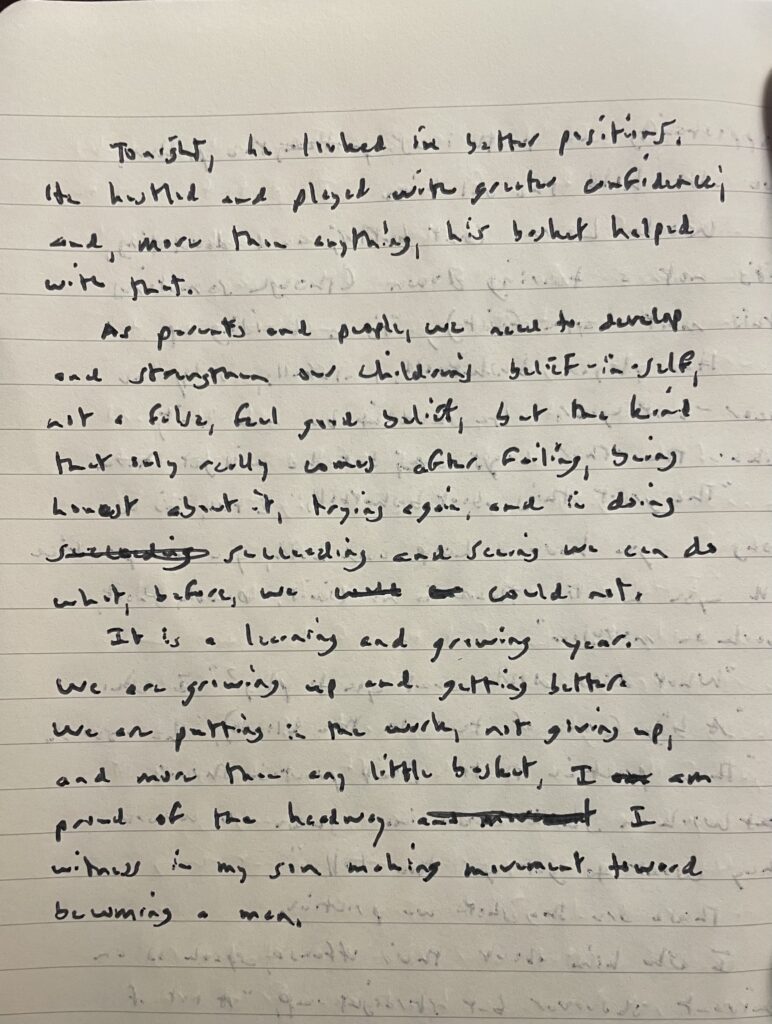 Tonight, he looked in better positions.
He hustled and played with greater confidence,
and, more than anything, his basket helped
with that.
As parents and people, we need to develop
and strengthen our children's belief-in-self,
not a false, feel good belief, but the kind
that only really comes after failing, being
honest about it, trying again, and in doing
succeeding succeeding and seeing we can do
what, before, we could not.
It is a learning and growing year.
We are growing up and getting better.
We are putting in the work, not giving up,
and more than any little basket, I am
proud of the headway and movement I
witness in my son making movement toward
becoming a man.